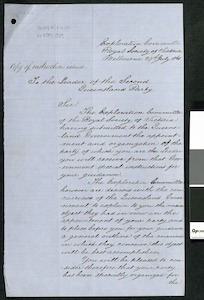 Exploration Committee
Royal Society of Victoria
Melbourne July 1861
Copy of instructions issued
To the Leader of the Second
Queensland Party
Sir,
The Exploration Committee
of the Royal Society of Victoria
having submitted to the Queens-
land Government the appoint-
ment and organization of the
party of which you are the Leader
you will receive from that Gov-
ernment special instructions for your
guidance.
The Exploration Committee
however are desirous with the con-
currence of the Queensland Govern-
ment to explain to you the main
object they had in view in the
appointment of your party and
to place before you for your guidance
a general outline of the manner
in which they conceive this object
will be best accomplished.
You will be pleased to con-
sider therefore that your party
has been specially organized for
the